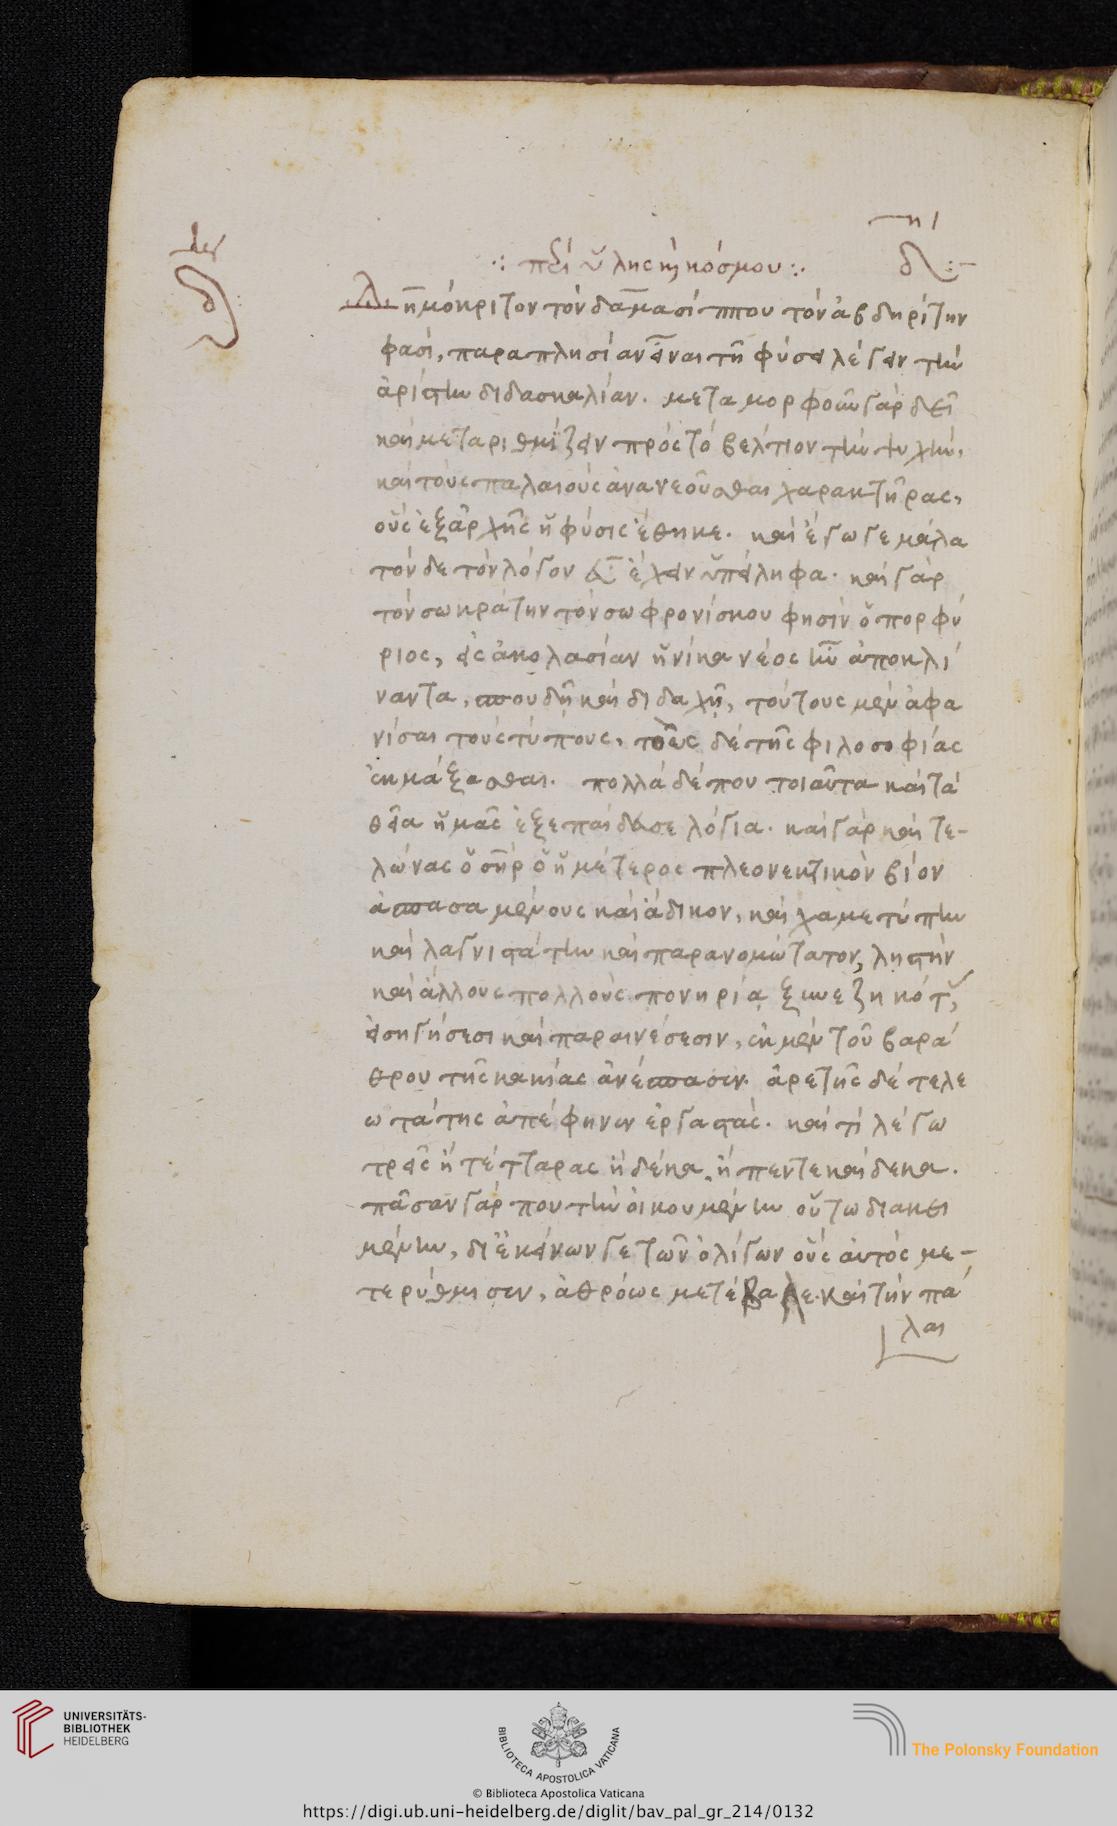 περὶ ὕλης καὶ κόσμου
Δημόκριτον τὸν δαμασίππου τὸν ἀβδηρίτην
φασὶ, παραπλησίαν εἶναι τῆ φύσει λέγειν τὴν
ἀρίστην διδασκαλίαν. μεταμορφοῦν γὰρ δεῖ
καὶ μεταριθμίζειν πρὸς τὸ βέλτιον τὴν ψυχὴν,
καὶ τοὺς παλαιοὺς ἀνανεοῦσθαι χαρακτῆρας,
οὓς ἐξαρχῆς ἡ φύσις ἔθηκε. καὶ ἔγωγε μάλα
τόνδε τὸν λόγον εὖ ἔχειν ὑπείληφα. καὶ γὰρ
τὸν σωκράτην τὸν σωφρονίσκου φησὶν ὁ πορφύ
ριος, εἰς ἀκολασίαν ἡνίκα νέος ἦν ἀποκλί
ναντα, σπουδῆ καὶ διδαχῆ, τούτους μὲν ἀφα
νίσαι τοὺς τύπους, τοὺς δὲ τῆς φιλοσοφίας
ἐκμάξασθαι. πολλὰ δέ που τοιαῦτα καὶ τὰ
θεῖα ἡμᾶς ἐξεπαίδευσε λόγια. καὶ γὰρ καὶ τε-
λώνας ὁ σὴρ ὁ ἡμέτερος πλεονεκτικὸν βίον
ἀσπασαμένους καὶ ἄδικον, καὶ χαμετύπην
καὶ λαγνιστάτην καὶ παρανομώτατον, ληστὴν
καὶ ἄλλους πολλοὺς πονηρία ξυνεζηκότας,
εἰσηγήσεσι καὶ παραινέσεσιν, ἐκ μὲν τοῦ βαρά
θρου τῆς κακίας ἀνέσπασεν. ἀρετῆς δὲ τελε
ωτάτης ἀπέφηνεν ἐργαστάς. καὶ τί λέγω
τρεῖς ἢ τέτταρας ἢ δέκα, ἢ πεντεκαίδεκα.
πᾶσαν γάρ που τὴν οἰκουμένην οὕτω διακει
μένην, δι' ἐκείνων γε τῶν ὀλίγων οὓς αὐτὸς με-
τερύθμισεν, ἀθρόως μετέβαλε. καὶ τὴν πά
λαι
UNIVERSITÄTS-
BIBLIOTHEK
HEIDELBERG
BIBLIOTECA APOSTOLICA VATICANA
The Polonsky Foundation
© Biblioteca Apostolica Vaticana
https://digi.ub.uni-heidelberg.de/diglit/bav_pal_gr_214/0132